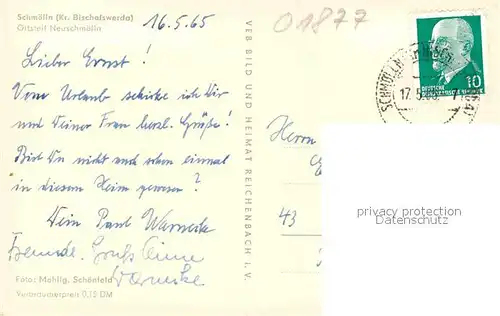 Schmölln (Kr. Bischofswerda)
Ortsteil Neuschmölln
16.5.65
01877
Lieber Ernst!
Vom Urlaub schicke ich Dir
und Deiner Frau herzl. Grüße!
Bist Du nicht auch schon einmal
in diesem Heim gewesen?
Dein Paul Warnecke
Freundl. Grüße
Warnecke
Foto: Mohlig, Schönfeld
Verbraucherpreis 0,15 DM
VEB BILD UND HEIMAT REICHENBACH i. V.
10
DEUTSCHE
DEMOKRATISCHE REPUBLIK
SCHMÖLLN
17.5.
Herrn
43
privacy protection
watermark